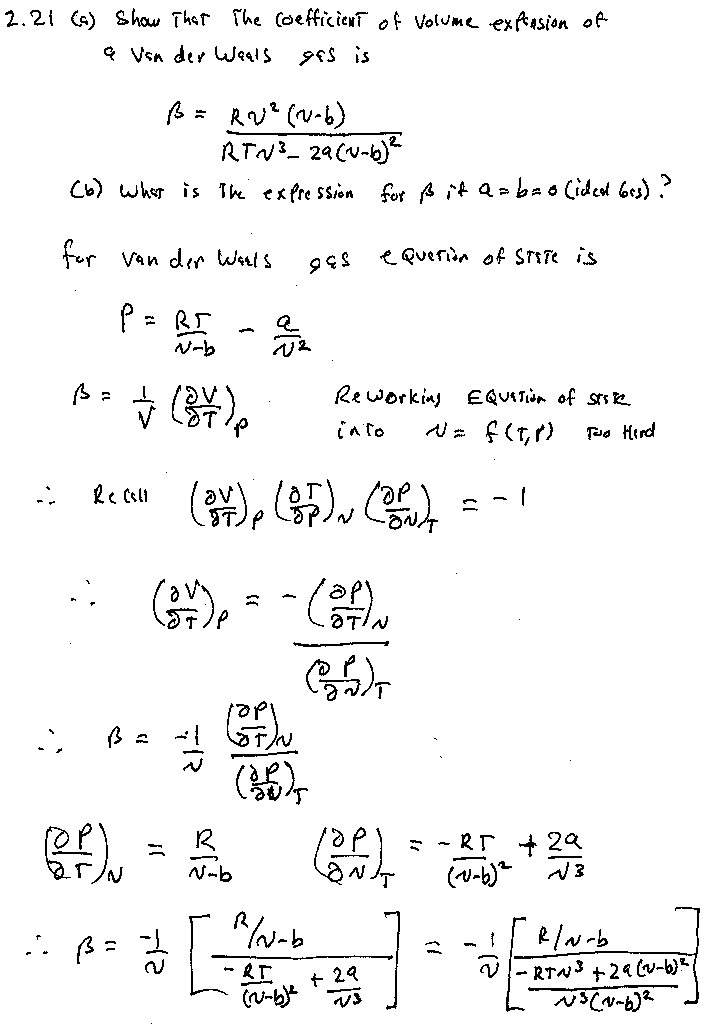 2.21 (a) Show That The Coefficient of Volume expansion of
a Van der Waals gas is
β = Rv²(v-b) / RTv³ - 2a(v-b)²
(b) What is The expression for β if a=b=0 (ideal Gas)?
for Van der Waals gas eQuation of STaTe is
P = RT/(v-b) - a/v²
β = 1/V (∂V/∂T)_P Reworking EQUaTion of state
into v = f(T,P) Too Hard
∴ Recall (∂V/∂T)_P (∂T/∂P)_v (∂P/∂v)_T = -1
∴ (∂V/∂T)_P = -(∂P/∂T)_v / (∂P/∂v)_T
∴ β = -1/v (∂P/∂T)_v / (∂P/∂v)_T
(∂P/∂T)_v = R/(v-b) (∂P/∂v)_T = -RT/(v-b)² + 2a/v³
∴ β = -1/v [ R/v-b / ( -RT/(v-b)² + 2a/v³ ) ] = -1/v [ R/v-b / ( -RTv³ + 2a(v-b)² / v³(v-b)² ) ]